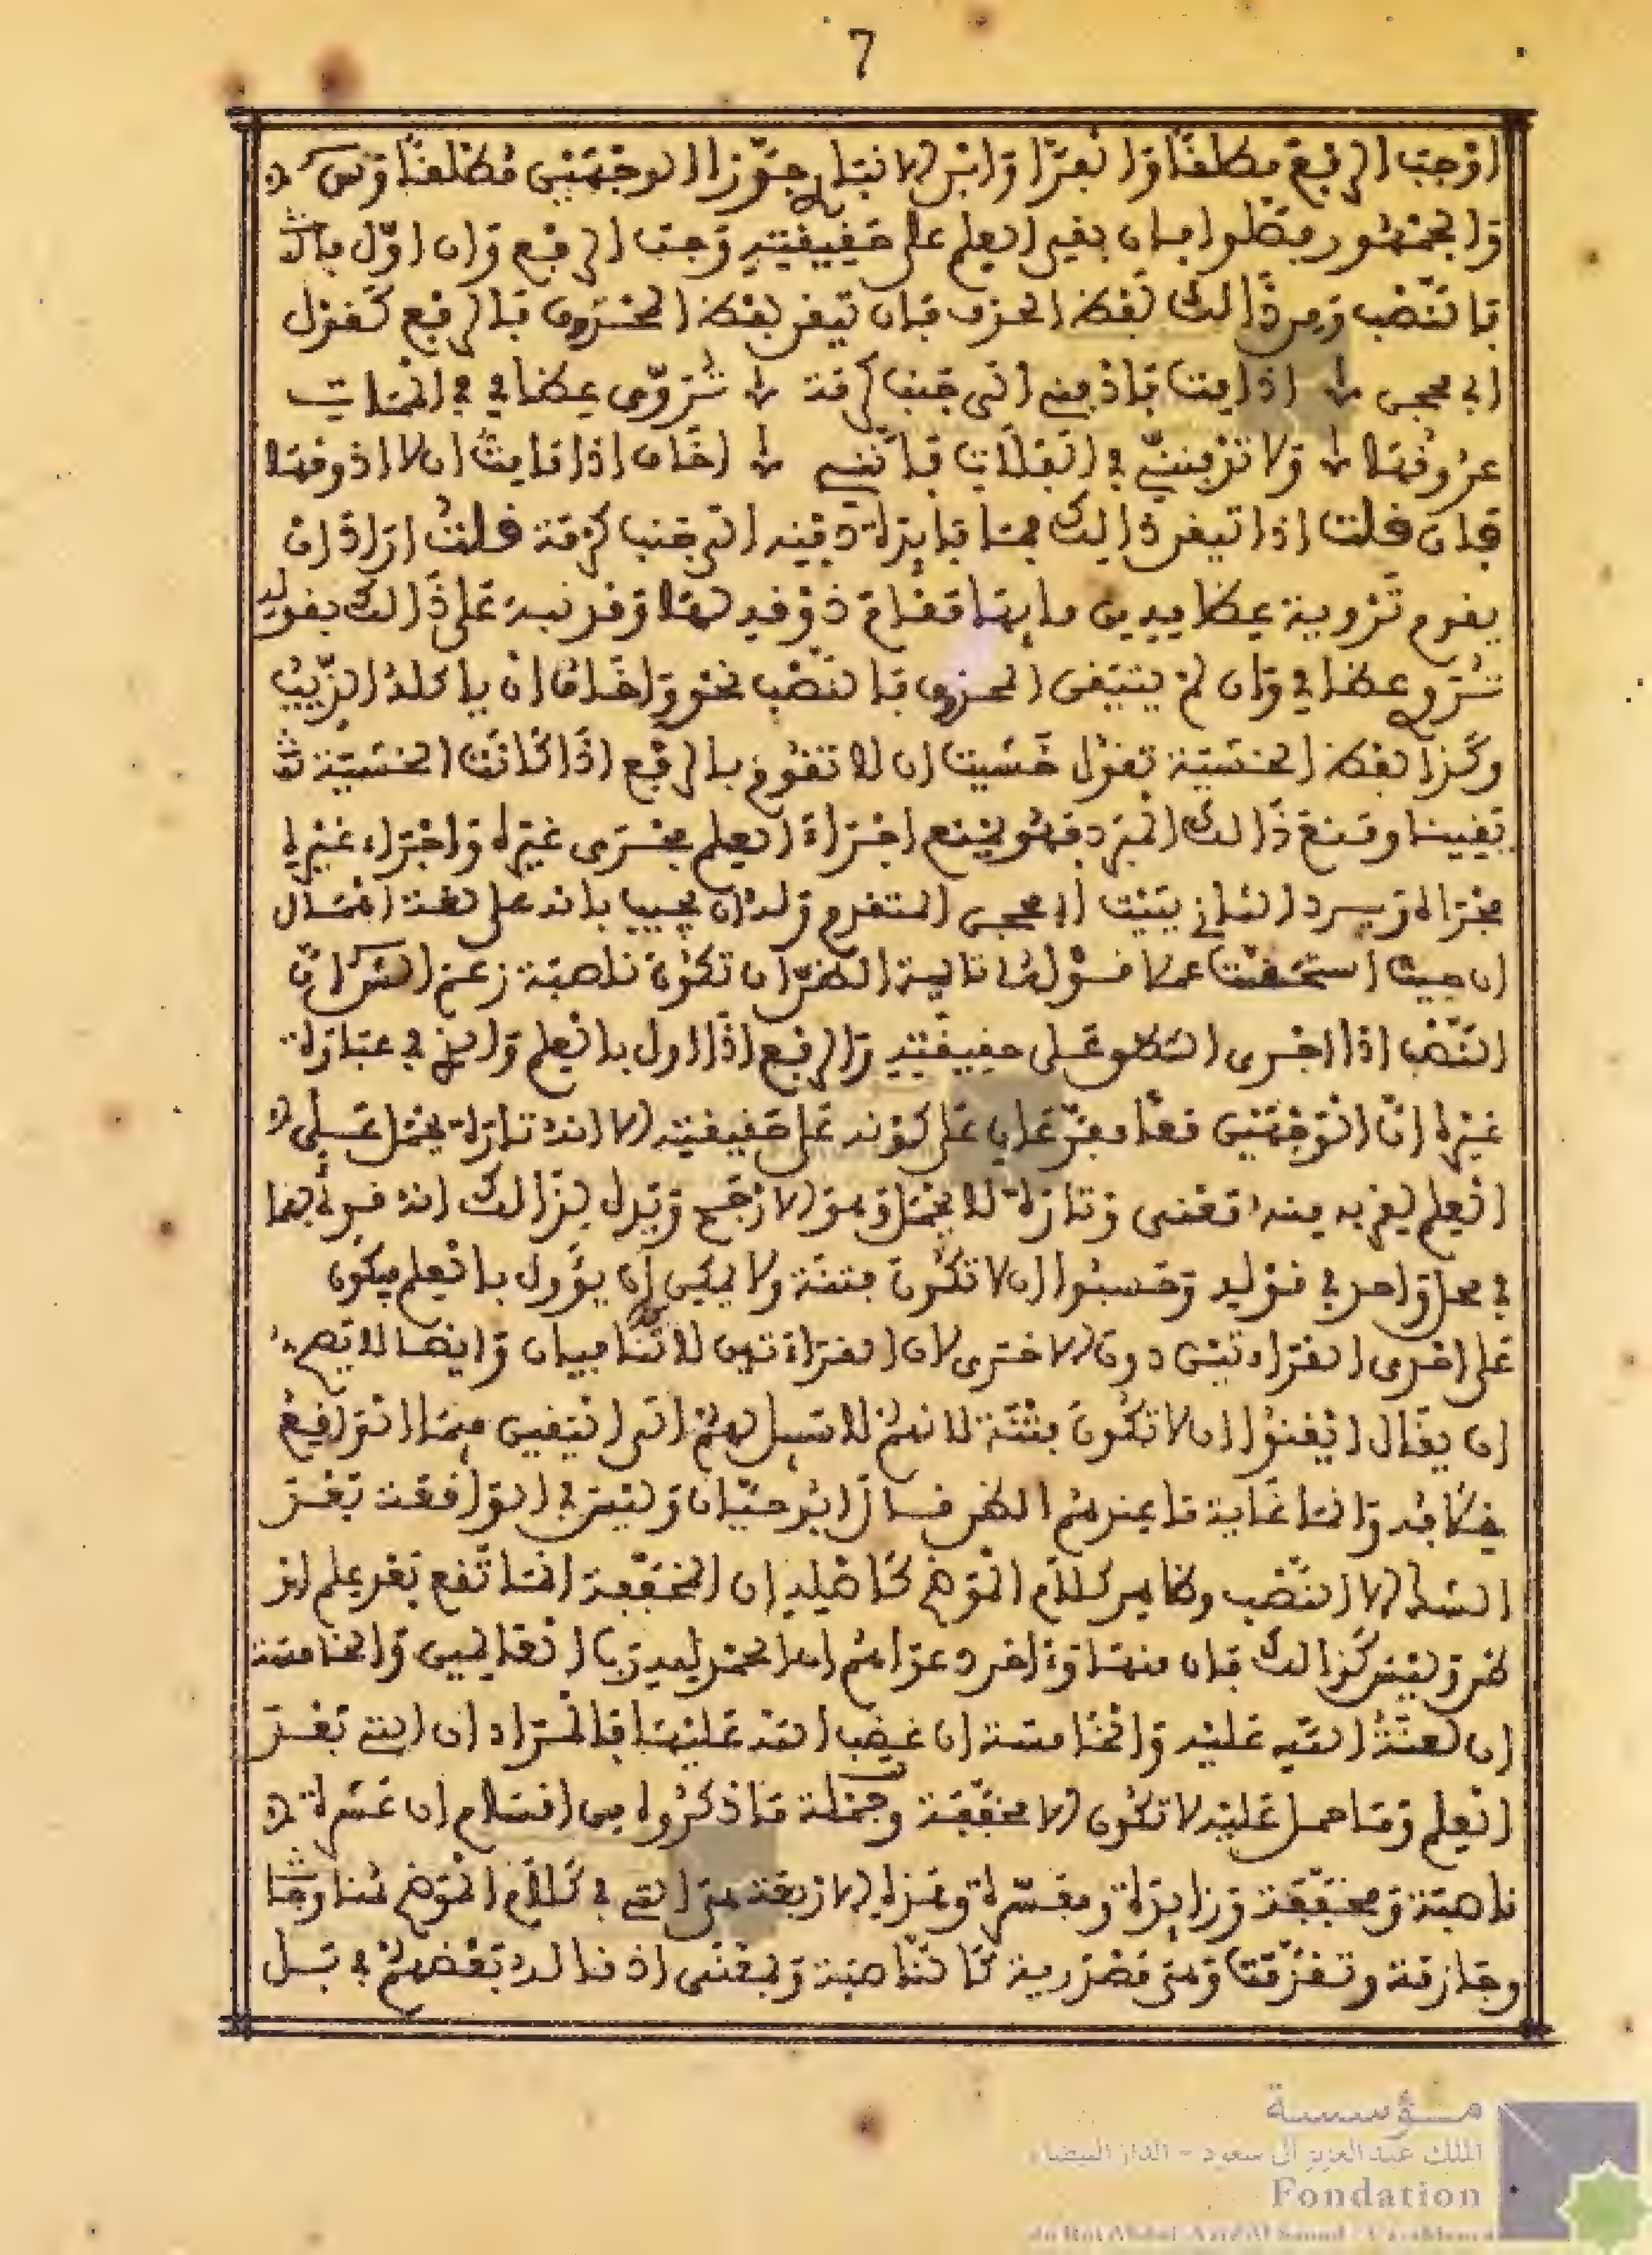 7
اوجب الرفع مطلقا والفرا وابن الانباري جوزا الوجهين مطلقا وس
والجمهور فصلوا فان بقي العلم على حقيقته وجب الرفع وان اول بالظن
فالنصب ومن ذالك لفظ الخوف فان تيقن لفظ المخوف فالرفع كقول
ابي محجن اذا مت فادفني الى جنب كرمة تروي عظامي في الممات
عروقها ولا تدفنني في الفلات فانني اخاف اذا ما مت ان لا اذوقها
فان قلت اذا تيقن ذالك فما فايدة دفنه الى جنب كرمة قلت اراد ان
يقوم تروية عظامه من مايها مقام ذوقه لها وقد نبه على ذالك بقوله
تروي عظامي وان لم يتيقن المخوف فالنصب نحو واخاف ان ياكله الذيب
وكذا لفظ الخشية تقول خشيت ان لا تقوم بالرفع اذا كانت الخشية
تقيينا ومنع ذالك المبرد فهو يمنع اجراء العلم مجرى غيره واجراء غيره
مجراه ويرد الثاني بيت ابي محجن المتقدم وله ان يجيب بانه على لغة اهمال
ان حيث استحقت عملا قوله تالية الظن ان تكون ناصبة زعم
النصب اذا اجري الظن على حقيقته والرفع اذا اول بالعلم والذي في عبارة
غيره ان الوجهين معا مفرعان على كونه على حقيقته الا انه تارة يحمل على
العلم لقربه منه معنى وتارة لا يحمل وهو الارجح ويدل لذالك انه قرئ بهما
في محل واحد في قوله وحسبوا ان لا تكون فتنة ولا يمكن ان يؤول بالعلم فيكون
على احدى القراءتين دون الاخرى لان القراءتين لا تتنافيان وايضا لا يصح
ان يقال ايقنوا ان لا تكون فتنة لانهم لا سبيل لهم الى التيقين فيما التواقيع
يخالفه وانما غاية ما عندهم الظن قال ابو حيان وليس في الواقعة بعد
الشك الا النصب وظاهر كلام الموضح كاصله ان المخففة انما تقع بعد علم او
ظن وليس كذالك فان منها واخر دعواهم ان الحمد لله رب العالمين والخامسة
ان لعنة الله عليه والخامسة ان غضب الله عليها فالمراد ان التي بعد
العلم وما حمل عليه لا تكون الا مخففة وجملة ما ذكروه من اقسام ان عشرة
ناصبة ومخففة وزايدة ومفسرة وهذه الاربعة هي التي في كلام الموضح هنا
وجازمة وتقدمت وهي مصدرية كالناصبة وبمعنى اذ قاله بعضهم في بل
مؤسسة
الملك عبد العزيز آل سعود - الدار البيضاء
Fondation
du Roi Abdul-Aziz Al Saoud - Casablanca